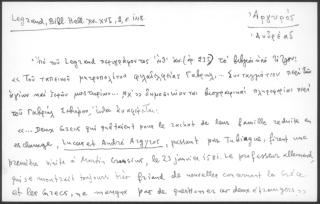 Legrand, Bibl. Hell. XV-XVI, 2, σ. in8.
Ἀργυρὸς
Ἀνδρέας
Ὑπὸ τοῦ Legrand περιγράφοντας
« Τοῦ ταπεινοῦ μητροπολίτου φιλαδελφείας Γαβριὴλ. Συνταγμάτιον περὶ τῶν
ἁγίων καὶ ἱερῶν μυστηρίων. δημοσιεύεται βιογραφικαὶ πληροφορίαι περὶ
τοῦ Γαβριὴλ Σεβήρου,
« ... Deux Grecs qui quêtaient pour le rachat de leurs famille réduite en
esclavage, Lucas et André Argyros, passant par Tubingue, firent une
première visite à Martin Crusius, le 23 janvier 1581. Le professeur allemand,
qui se montrait toujours friand de nouvelles concernant la Grèce
et les Grecs, ne manqua pas de questionner ces deux étrangers »